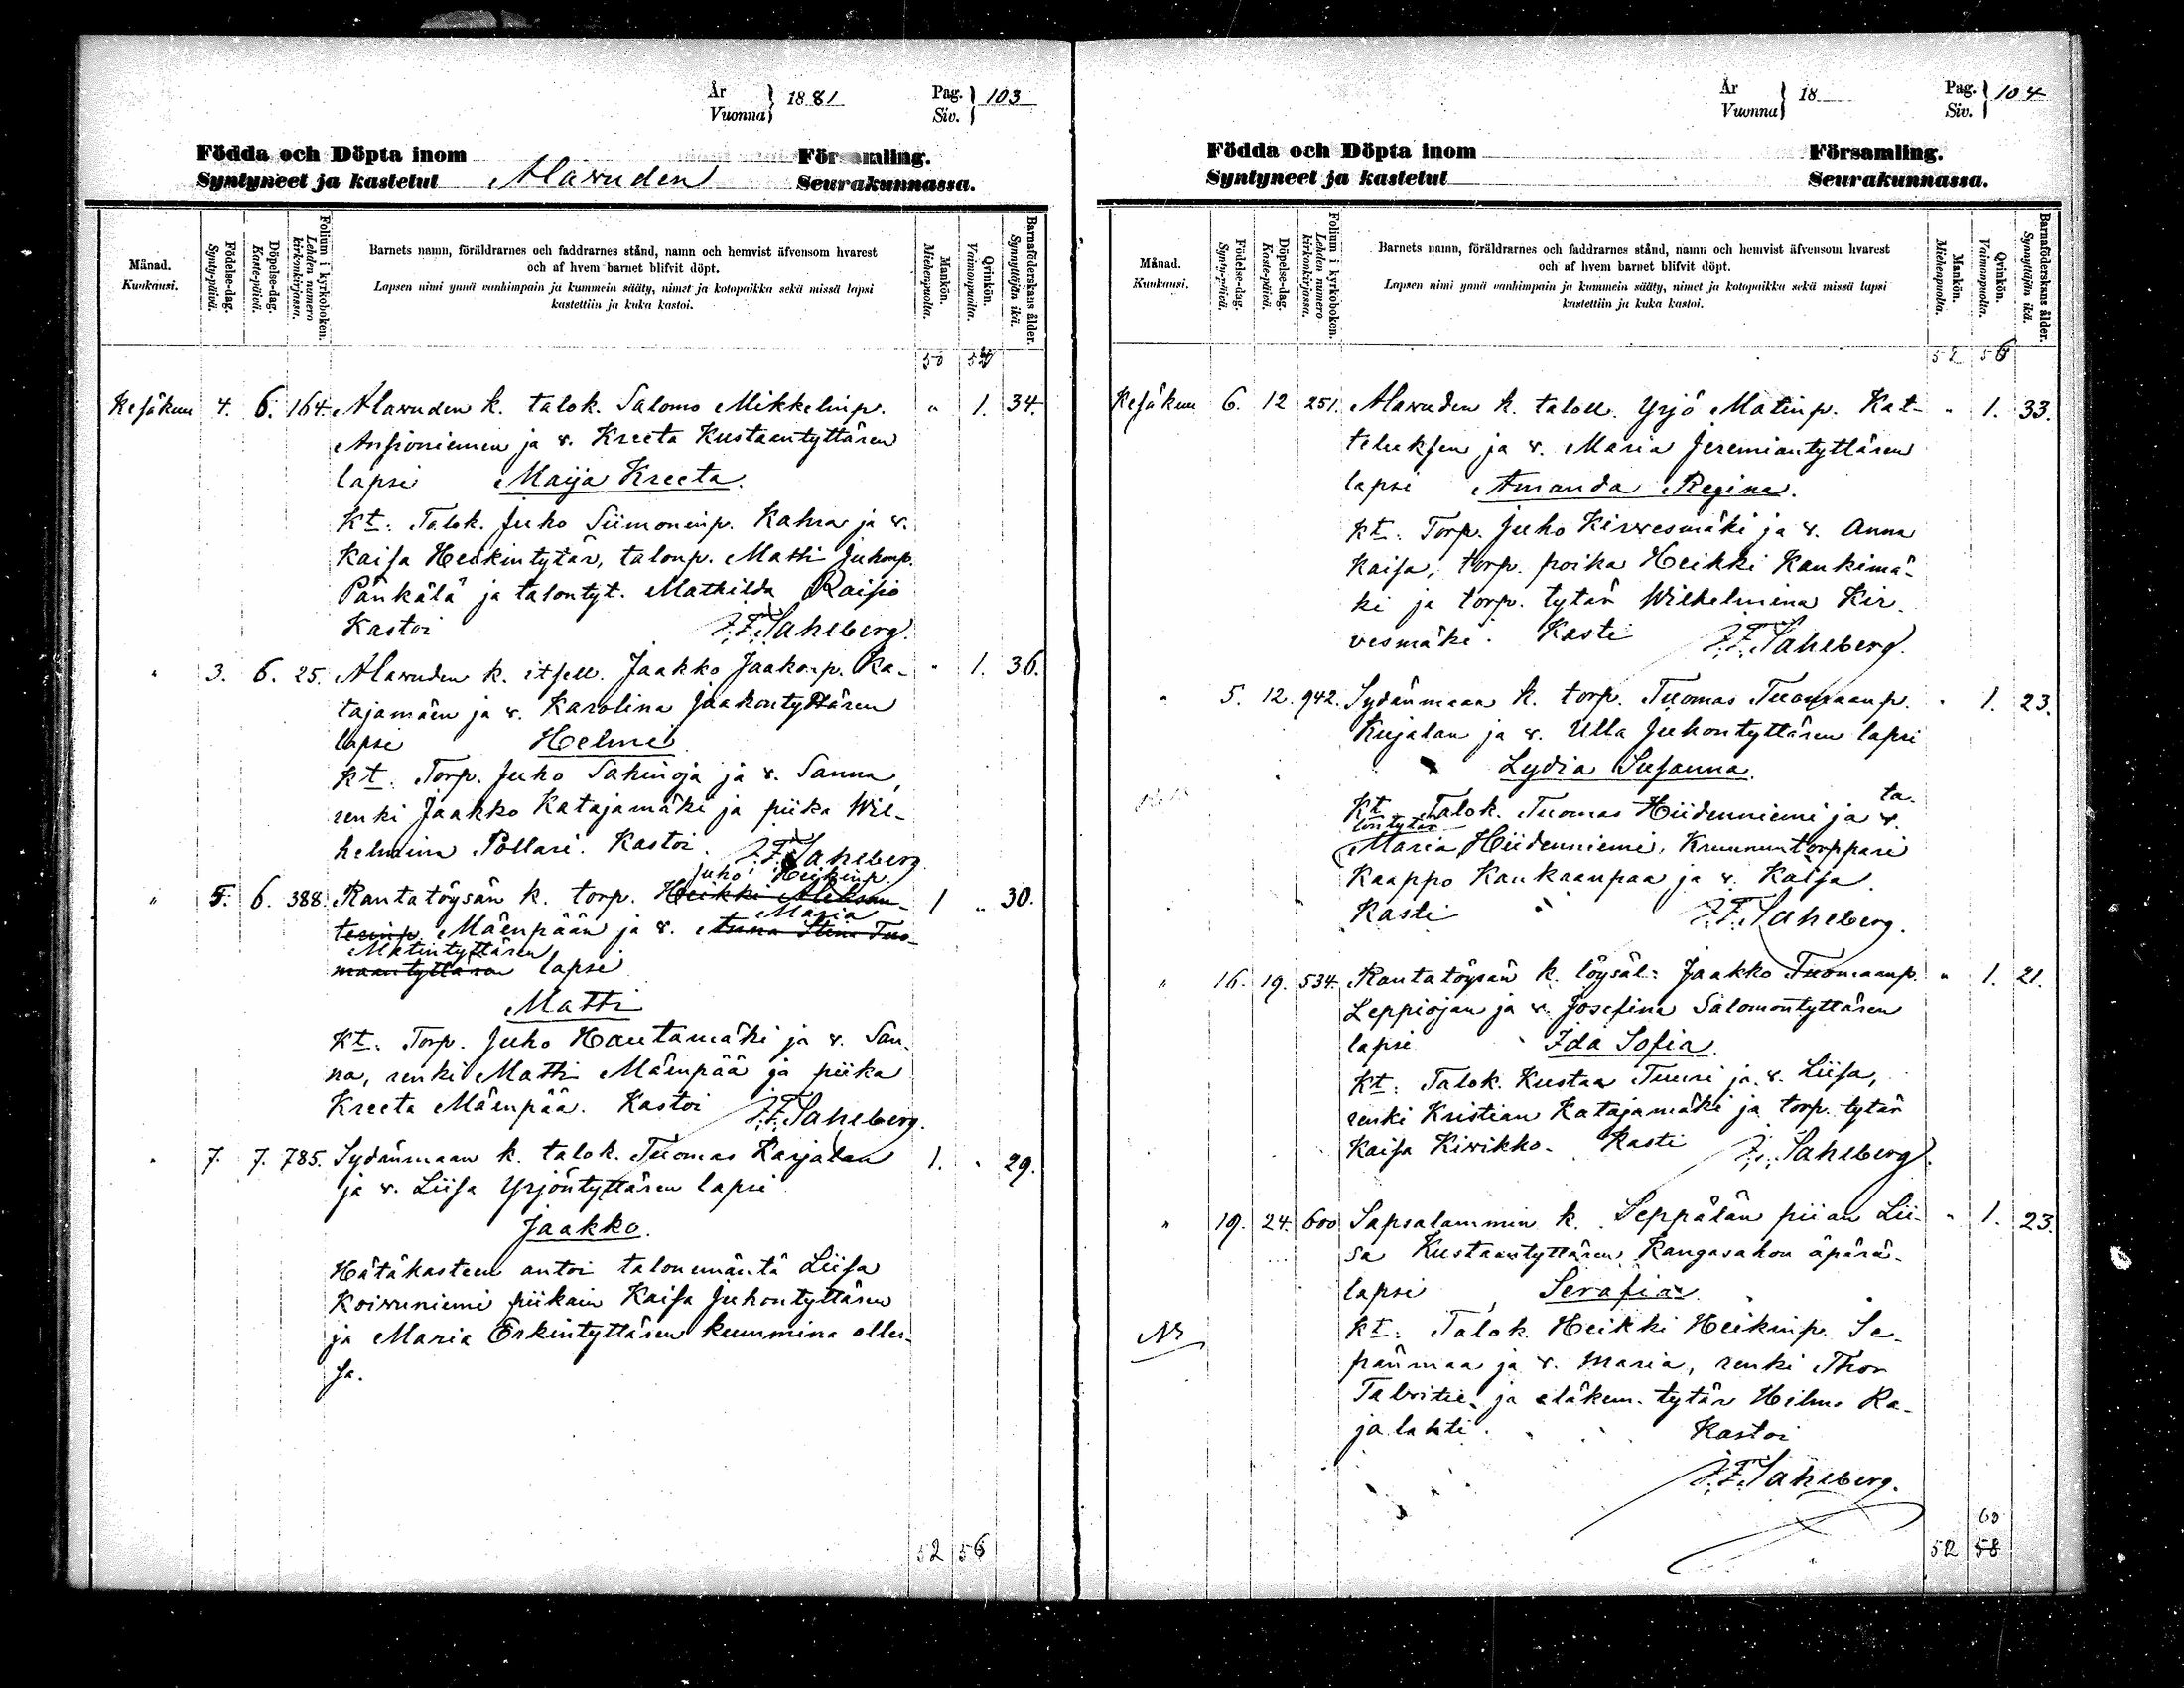 År
Vuonna
1881
Pag.
Siv.
103
Födda och Döpta inom Församling.
Syntyneet ja kastetut Alavuden Seurakunnassa.
Månad.
Kuukausi.
Födelse-dag.
Synty-päivä.
Döpelse-dag.
Kaste-päivä.
Folium i kyrkoboken.
Lehden numero
kirkonkirjassa.
Barnets namn, föräldrarnes och faddrarnes stånd, namn och hemvist äfvensom hvarest
och af hvem barnet blifvit döpt.
Lapsen nimi ynnä vanhimpain ja kummein sääty, nimet ja kotopaikka sekä missä lapsi
kastettiin ja kuka kastoi.
Mankön.
Miehenpuolta.
Qvinkön.
Vaimonpuolta.
Barnaföderskans ålder.
Synnyttäjän ikä.
Kesäkuu 4. 6. 164. Alavuden k. talok. Salomo Mikkelinp. " 1. 34.
Ansioniemen ja v. Kreeta Kustaantyttären
lapsi Maija Kreeta.
Kt. Talok. Juho Siimoninp. Kahra ja v.
Kaisa Heikintytär, talonp. Matti Juhonp.
Pänkälä ja talontyt. Mathilda Raisio
Kastoi J.F. Sahlberg.
" 3. 6. 25. Alavuden k. itsell. Jaakko Jaakonp. Ka- " 1. 36.
tajamäen ja v. Karolina Jaakontyttären
lapsi Helmi
Kt. Torp. Juho Sahinoja ja v. Sanna,
renki Jaakko Katajamäki ja piika Wil-
helmina Pollari. Kastoi J.F. Sahlberg.
Juho Heikinp.
" 5. 6. 388. Rantatöysän k. torp. Heikki Aleksan- 1 " 30.
Maria
terinp. Mäenpään ja v. Anna Stina Tuo-
Matintyttären
maantyttären lapsi
Matti
Kt. Torp. Juho Hautamäki ja v. San-
na, renki Matti Mäenpää ja piika
Kreeta Mäenpää. Kastoi J.F. Sahlberg.
" 7. 7. 785. Sydänmaan k. talok. Tuomas Karjalan 1. " 29.
ja v. Liisa Yrjöntyttären lapsi
Jaakko.
Hätäkasteen antoi talonemäntä Liisa
Koivuniemi piikain Kaisa Juhontyttären
ja Maria Erkintyttären kummina olles-
sa.
52 56
År
Vuonna
18
Pag.
Siv.
104
Födda och Döpta inom Församling.
Syntyneet ja kastetut Seurakunnassa.
Månad.
Kuukausi.
Födelse-dag.
Synty-päivä.
Döpelse-dag.
Kaste-päivä.
Folium i kyrkoboken.
Lehden numero
kirkonkirjassa.
Barnets namn, föräldrarnes och faddrarnes stånd, namn och hemvist äfvensom hvarest
och af hvem barnet blifvit döpt.
Lapsen nimi ynnä vanhimpain ja kummein sääty, nimet ja kotopaikka sekä missä lapsi
kastettiin ja kuka kastoi.
Mankön.
Miehenpuolta.
Qvinkön.
Vaimonpuolta.
Barnaföderskans ålder.
Synnyttäjän ikä.
52 56
Kesäkuu 6. 12 251. Alavuden k. taloll. Yrjö Matinp. Kat- " 1. 33.
teluksen ja v. Maria Jeremiantyttären
lapsi Amanda Regina.
Kt. Torp. Juho Kirvesmäki ja v. Anna
Kaisa, torp. poika Heikki Kaukimä-
ki ja torp. tytär Wilhelmina Kir-
vesmäki. Kasti J.F. Sahlberg.
" 5. 12. 942. Sydänmaan k. torp. Tuomas Tuomaanp. " 1. 23.
Kujalan ja v. Ulla Juhontyttären lapsi
Lydia Susanna.
Kt. Talok. Tuomas Hiidenniemi ja v. ta-
lontytär
Maria Hiidenniemi, Kruununtorppari
Kaappo Kaukaanpaa ja v. Kaisa.
Kasti J.F. Sahlberg.
" 16. 19. 534. Rantatöysän k. löysäl: Jaakko Tuomaanp. " 1. 21.
Leppiojan ja v. Josefina Salomontyttären
lapsi Ida Sofia.
Kt. Talok. Kustaa Tuuri ja v. Liisa,
renki Kristian Katajamäki ja torp. tytär
Kaisa Kivikko. Kasti J.F. Sahlberg.
" 19. 24. 600 Sapsalammin k. Seppälän piian Lii- " 1. 23.
sa Kustaantyttären Kangasahon äpärä-
lapsi Serafia.
Kt. Talok. Heikki Heikinp. Se-
pänmaa ja v. Maria, renki Thor
Talvitie ja eläkem. tytär Hilma Ra-
jalahti. Kastoi
J.F. Sahlberg.
60
52 58